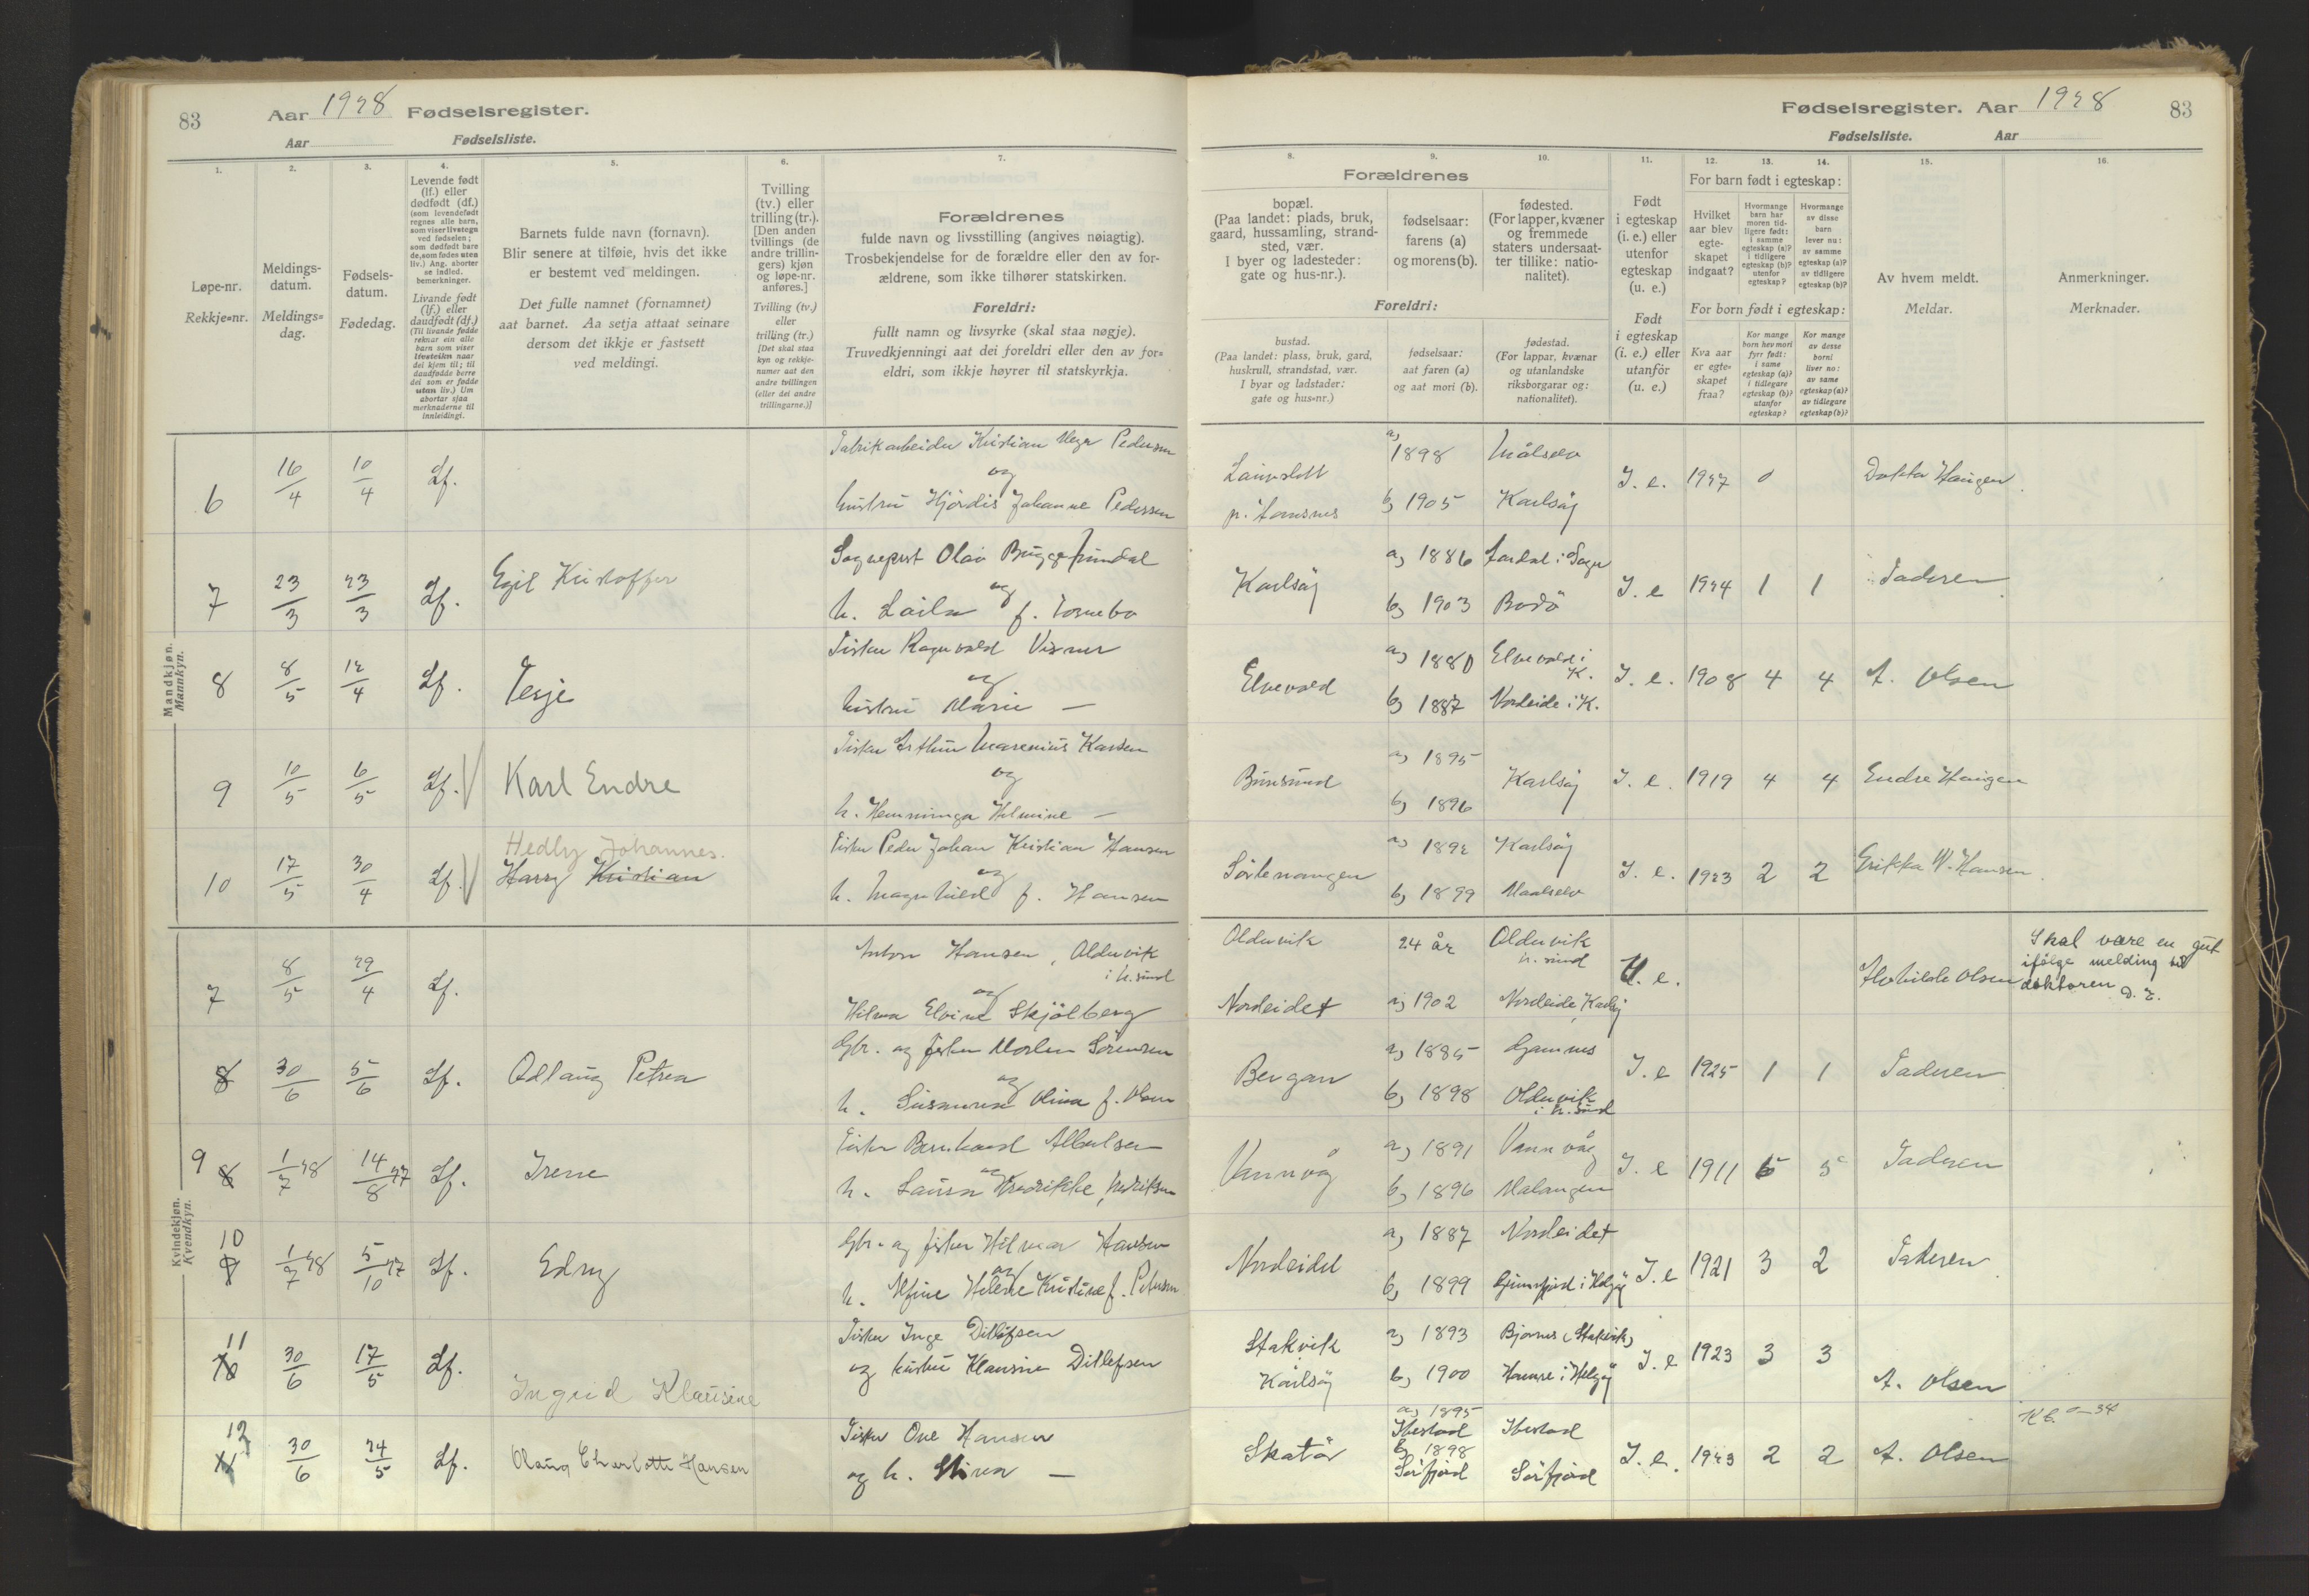 83
Aar 1928 Fødselsregister.
Aar
Fødselsliste.
1.
Løpe-nr.
Rekkje=nr.
2.
Meldings-
datum.
Meldings=
dag.
3.
Fødsels-
datum.
Fødedag.
4.
Levende født
(lf.) eller
dødfødt (df.)
(som levendefødt
regnes alle barn,
som viser livstegn
ved fødselen;
som dødfødt bare
de, som fødes uten
liv.) Ang. aborter
se indled.
bemerkninger.
Livande født
(lf.) eller
daudfødt (df.)
(Til livande fødde
reknar ein alle
born som viser
livsteikn naar
dei kjem til; til
daudfødde berre
dei som er fødde
utan liv.) Um
abortar sjaa
merknaderne til
innleidingi.
5.
Barnets fulde navn (fornavn).
Blir senere at tilføie, hvis det ikke
er bestemt ved meldingen.
Det fulle namnet (fornamnet)
aat barnet. Aa setja attaat seinare
dersom det ikkje er fastsett
ved meldingi.
6.
Tvilling
(tv.) eller
trilling (tr.).
[Den anden
tvillings (de
andre trillin-
gers) kjøn
og løpe-nr.
anføres.]
Tvilling (tv.)
eller
trilling (tr.)
[Det skal staa
kyn og rekkje-
numer aat den
andre tvillingen
(eller dei andre
trillingarne.)]
7.
Forældrenes
fulde navn og livsstilling (angives nøiagtig).
Trosbekjendelse for de forældre eller den av for-
ældrene, som ikke tilhører statskirken.
Foreldri:
fullt namn og livsyrke (skal staa nøgje).
Truvedkjenningi aat dei foreldri eller den av for=
eldri, som ikkje høyrer til statskyrkja.
Mandkjøn.
Mannkyn.
6 16/4 10/4 Lf. Fabrikarbeider Kristian Meyer Pedersen
og
hustru Hjördis Johanne Pedersen
7 23/3 23/3 Lf. Egil Kristoffer Sogneprest Olav Brygge
og
h. Laila f. Tornebo
8 8/5 12/4 Lf. Terje Fisker Ragnvald
og
hustru Marie —
9 10/5 6/5 Lf. Karl Endre Fisker Arthur Marenius Karlsen
og
h. Henninga Helmine —
Hedly Johannes.
10 17/5 30/4 Lf. Harry Kristian Fisker Peder Johan Kristian Hansen
og
h. Magnhild f. Hansen
Kvindekjøn.
Kvendkyn.
7 8/5 29/4 Lf. Anton Hansen, Oldervik
i U.sund
og
Hilma Elvine Skjölberg
8 30/6 5/6 Lf. Odlaug Petrea Gbr. og fisker Morten Sörensen
og
h. Olina f. Olsen
9 8 1/7 28 14/8 27 Lf. Irene Fisker Bernhard Albertsen
og
h. Laura Fredrikke
10 9 1/7 28 5/10 27 Lf. Edny Gbr. og fisker Hilmar Hansen
og
h. Helene Kristine f. Petersen
11 10 30/6 17/5 Lf. Ingrid Klausine Fisker Inge Ditlefsen
og hustru Klausine Ditlefsen
12 11 30/6 24/5 Lf. Olaug Charlotte Hansen Fisker Ove Hansen
og h. —
Fødselsregister. Aar 1928
83
Fødselsliste.
Aar
8.
9.
10.
Forældrenes
bopæl.
(Paa landet: plads, bruk,
gaard, hussamling, strand-
sted, vær.
I byer og ladesteder:
gate og hus-nr.).
fødselsaar:
farens (a)
og morens (b).
fødested.
(For lapper, kvæner
og fremmede
staters undersaat-
ter tillike: natio-
nalitet).
Foreldri:
bustad.
(Paa landet: plass, bruk, gard,
huskrull, strandstad, vær.
I byar og ladstader:
gate og hus=nr.)
fødselsaar:
aat faren (a)
og aat mori (b).
fødestad.
(For lappar, kvænar
og utanlandske
riksborgarar og:
nationalitet).
11.
Født
i egteskap
(i. e.) eller
utenfor
egteskap
(u. e.)
Født
i egteskap
(i. e.) eller
utanfør
(u. e.)
12.
13.
14.
For barn født i egteskap:
Hvilket
aar blev
egte-
skapet
indgaat?
Hvormange
barn har
moren tid-
ligere født:
i samme
egteskap (a)?
i tidligere
egteskap (b)?
utenfor
egteskap?
Hvormange
av disse
barn
lever nu:
av samme
egteskap (a)?
av tidligere
egteskap (b)?
For born født i egteskap:
Kva aar
er egte=
skapet
fraa?
Kor mange
born hev mori
fyrr født:
i same
egteskap (a)?
i tidlegare
egteskap (b)?
utanfor
egteskap?
Kor mange
av desse
borni
liver no:
av same
egteskap (a)?
av tidlegare
egteskap (b)?
15.
Av hvem meldt.
Meldar.
16.
Anmerkninger.
Merknader.
a) 1898 Målselv
p. b) 1905 Karlsøy I. e. 1927 0 Dokta Haugen
Karlsøy a) 1886 i Sogn
b) 1903 Bodö I. e 1924 1 1 Faderen
Elvevold a) 1880 Elvevold i K.
b) 1887 Nordeide i K. I. e. 1908 4 4 A. Olsen
a) 1895
b) 1896 Karlsøy I. e. 1919 4 4 Endre Haugen
Sörlenangen a) 1892 Karlsøy
b) 1899 Maalselv I. e. 1923 2 2 Erikka W. Hansen
Oldervik 24 år Oldervik
U. sund
U. e.
Nordeidet 1902 Nordeide, Karlsøy Olsen
Skal være en gut
ifølge melding til
doktoren
Bergan a) 1885
b) 1898 Oldervik
i U. sund I. e 1925 1 1 Faderen
Vannvåg a) 1891 Vannvåg
b) 1896 Malangen I. e 1911 5 5 Faderen
Nordeidet a) 1887 Nordeidet
b) 1899 i Helgøy I. e 1921 3 2 Faderen
Stakvik
Karlsøy a) 1893 Bjørnes (Stakvik)
b) 1900 Hamre i Helgøy I. e 1923 3 3 A. Olsen
Skatör a) 1895
Ibestad Ibestad
b) 1898
Sörfjord Sörfjord I. e. 1923 2 2 A. Olsen